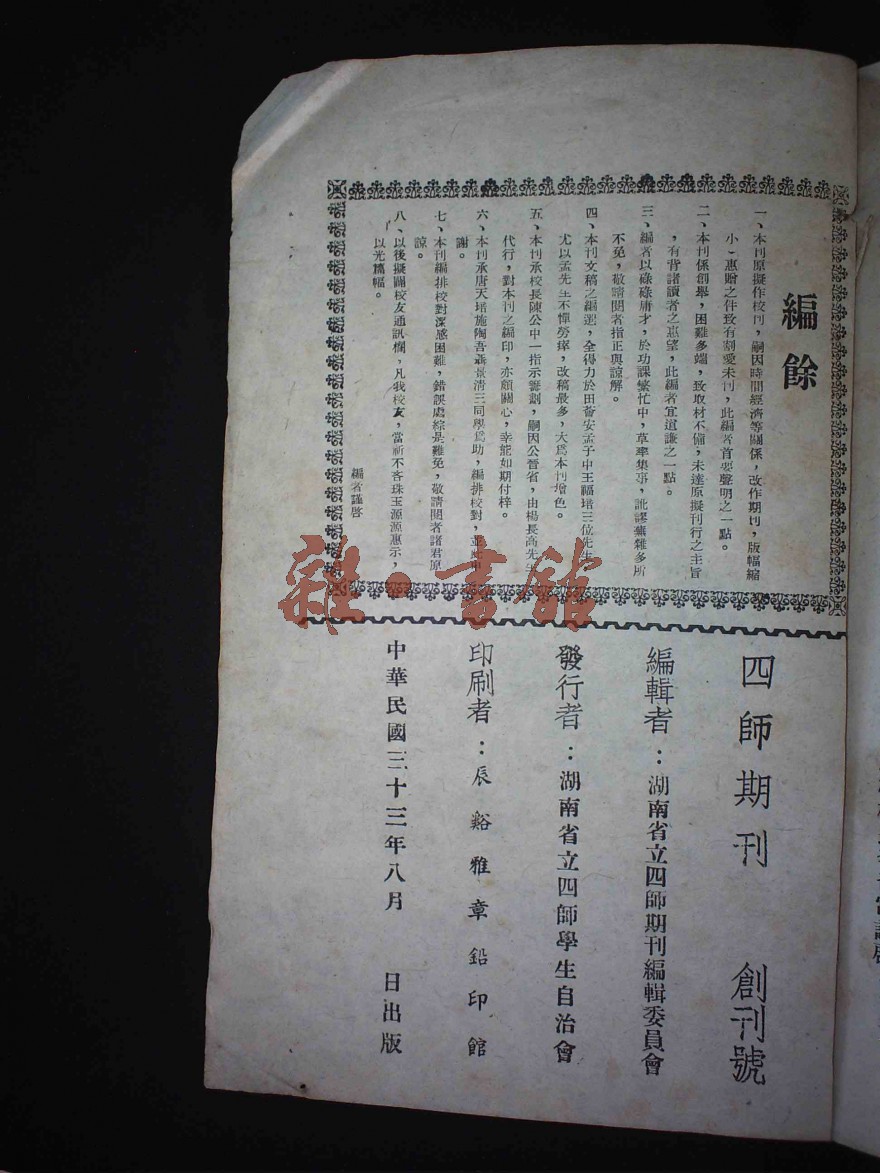 編餘
一、本刊原擬作校刊，嗣因時間經濟等關係，改作期刊，版幅縮
小，惠贈之件致有割愛未刊，此編者首要聲明之一點。
二、本刊係創舉，困難多端，致取材不備，未達原擬刊行之主旨
，有背諸讀者之惠望，此編者宜道謙之一點。
三、編者以碌碌庸才，於功課繁忙中，草率集事，訛謬蕪雜多所
不免，敬請閱者指正與諒解。
四、本刊文稿之編選，全得力於田薈安孟子中王福培三位先生
尤以孟先生不憚勞瘁，改稿最多，大爲本刊增色。
五、本刊承校長陳公中一指示籌劃，嗣因公晉省，由楊長高先生
代行，對本刊之編印，亦頗關心，幸能如期付梓。
六、本刊承唐天培施陶吾聶景清三同學爲助，編排校對，並應申
謝。
七、本刊編排校對深感困難，錯誤處綜是難免，敬請閱者諸君原
諒。
八、以後擬闢校友通訊欄，凡我校友，當祈不吝珠玉源源惠示，
以光篇幅。
編者謹啓
四師期刊 創刊號
編輯者：湖南省立四師期刊編輯委員會
發行者：湖南省立四師學生自治會
印刷者：辰谿雅章鉛印館
中華民國三十三年八月 日出版
雜·書館